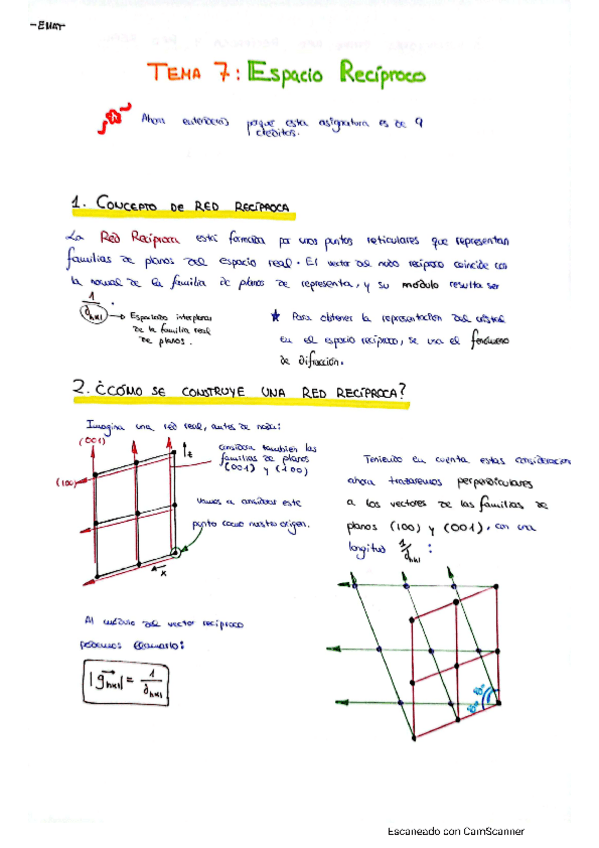 -EMAT
TEMA 7: Espacio Recíproco
Ahora entenderéis porque esta asignatura es de 9
créditos.
1. CONCEPTO DE RED RECÍPROCA
La Red Recíproca está formada por unos puntos reticulares que representan
familias de planos del espacio real. El vector del nodo recíproco coincide con
la normal de la familia de planos de representa, y su módulo resulta ser
1/dhkl.
→ Espaciado interplanar
de la familia real
de planos.
★ Para obtener la representación del cristal
en el espacio recíproco, se usa el fenómeno
de difracción.
2. ¿CÓMO SE CONSTRUYE UNA RED RECÍPROCA?
Imagina una red real, antes de nada:
(001)
(100)
z
x
considera también las
familias de planos
(001) y (100)
vamos a considerar este
punto como nuestro origen.
Teniendo en cuenta estas consideración
ahora trataremos perpendiculares
a los vectores de las familias de
planos (100) y (001), con una
longitud 1/dhkl:
Al módulo del vector recíproco
podemos llamarlo:
|ghkl| = 1/dhkl
90°
90°
Escaneado con CamScanner